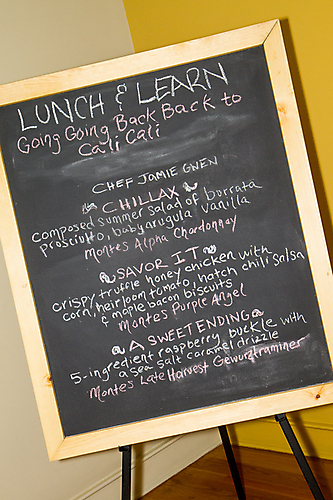 LUNCH & LEARN
Going Going Back Back to
Cali Cali
CHEF JAMIE GWEN
CHILLAX
composed summer salad of burrata
prosciutto, baby arugula, vanilla
Montes Alpha Chardonnay
SAVOR IT
crispy truffle honey chicken with
corn, heirloom tomato, hatch chili salsa
& maple bacon biscuits
Montes Purple Angel
A SWEET ENDING
5-ingredient raspberry buckle with
a sea salt caramel drizzle
Montes Late Harvest Gewurztraminer